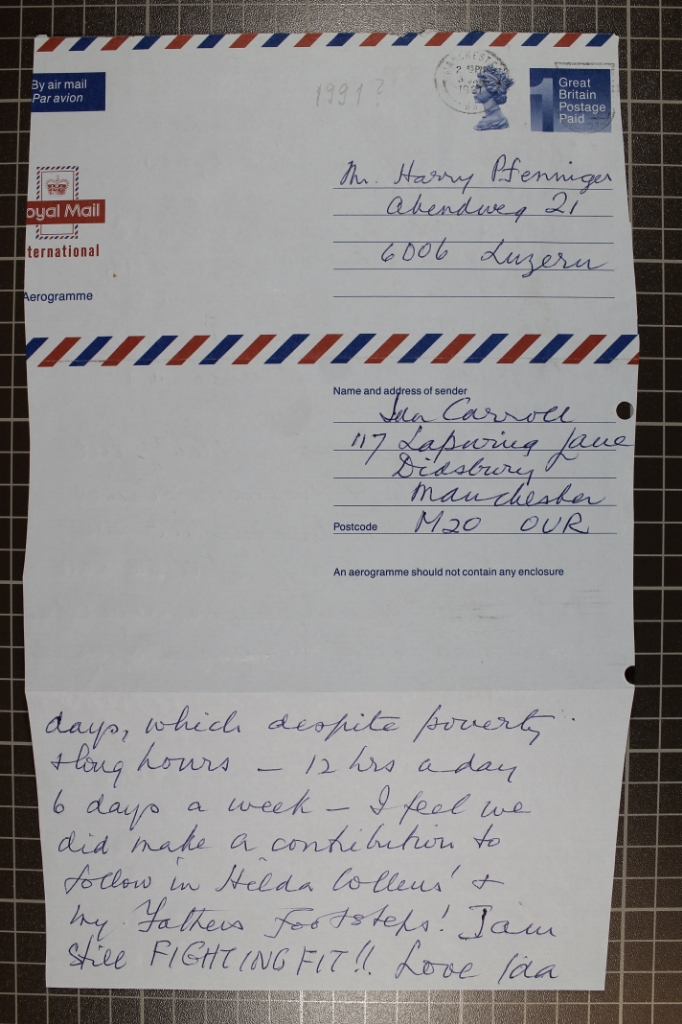 By air mail
Par avion
1991?
Great
Britain
Postage
Paid
1
oyal Mail
ternational
Aerogramme
Mr. Harry Pfenniger
Abendweg 21
6006 Luzern
Name and address of sender
Ida Carroll
117 Lapwing Lane
Didsbury
Manchester
Postcode M20 OUR
An aerogramme should not contain any enclosure
days, which despite poverty
& long hours – 12 hrs a day
6 days a week – I feel we
did make a contribution to
follow in Hilda Collens' &
my Fathers Footsteps! I am
still FIGHTING FIT!! Love Ida